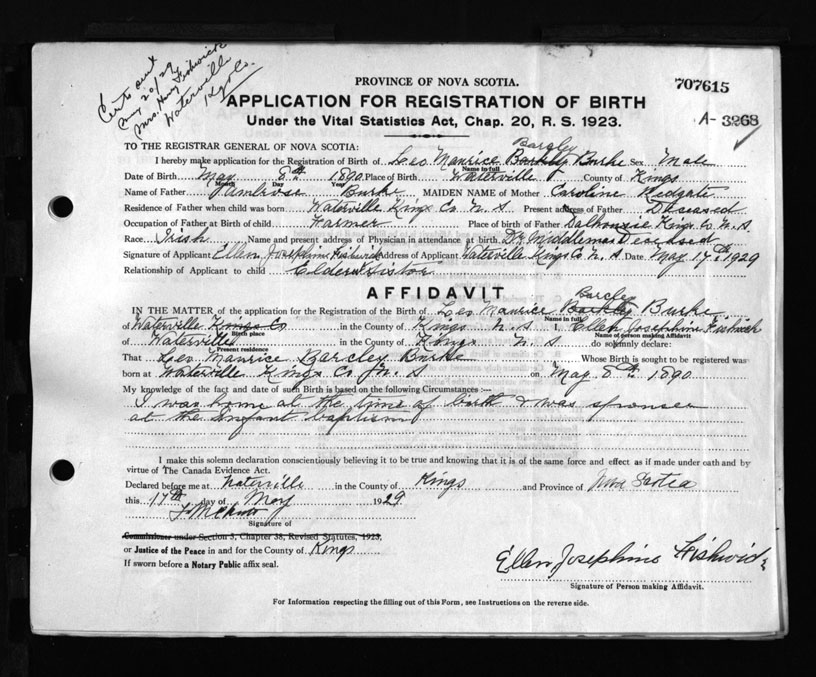 Cert sent
May 20/29
Mrs Harry Fishwick
Waterville
Kgs Co.
PROVINCE OF NOVA SCOTIA.
707615
APPLICATION FOR REGISTRATION OF BIRTH
Under the Vital Statistics Act, Chap. 20, R. S. 1923.
A-3268
TO THE REGISTRAR GENERAL OF NOVA SCOTIA:
Barcley
I hereby make application for the Registration of Birth of Leo Maurice Barkley Burke Sex Male
Name in full
Date of Birth May 8th 1890 Place of Birth Waterville County of Kings
Month Day Year
Name of Father Ambrose Burke MAIDEN NAME of Mother Caroline Redgate
Residence of Father when child was born Waterville Kings Co N S Present address of Father Deceased
Occupation of Father at Birth of child Farmer Place of birth of Father Dalhousie Kings Co. N. S.
Race Irish Name and present address of Physician in attendance at birth Dr Middlemas Deceased
Signature of Applicant Ellen Josephine Fishwick Address of Applicant Waterville Kings Co N. S. Date May 17th 1929
Relationship of Applicant to child Eldest Sister
AFFIDAVIT
Barcley
IN THE MATTER of the application for the Registration of the Birth of Leo Maurice Barkley Burke
Name in full
of Waterville Kings Co in the County of Kings N. S I, Ellen Josephine Fishwick
Birth place Name of person making Affidavit
of Waterville in the County of Kings N. S do solemnly declare:
Present residence
That Leo Maurice Barcley Burke Whose Birth is sought to be registered was
born at Waterville Kings Co N. S on May 8th 1890
My knowledge of the fact and date of such Birth is based on the following Circumstances :—
I was home at the time of birth & was sponser
at the Infant baptism
I make this solemn declaration conscientiously believing it to be true and knowing that it is of the same force and effect as if made under oath and by
virtue of The Canada Evidence Act.
Declared before me at Waterville in the County of Kings and Province of Nova Scotia
this 17th day of May 1929
Signature of
Commissioner under Section 3, Chapter 38, Revised Statutes, 1923.
or Justice of the Peace in and for the County of Kings
If sworn before a Notary Public affix seal.
Ellen Josephine Fishwick
Signature of Person making Affidavit.
For Information respecting the filling out of this Form, see Instructions on the reverse side.